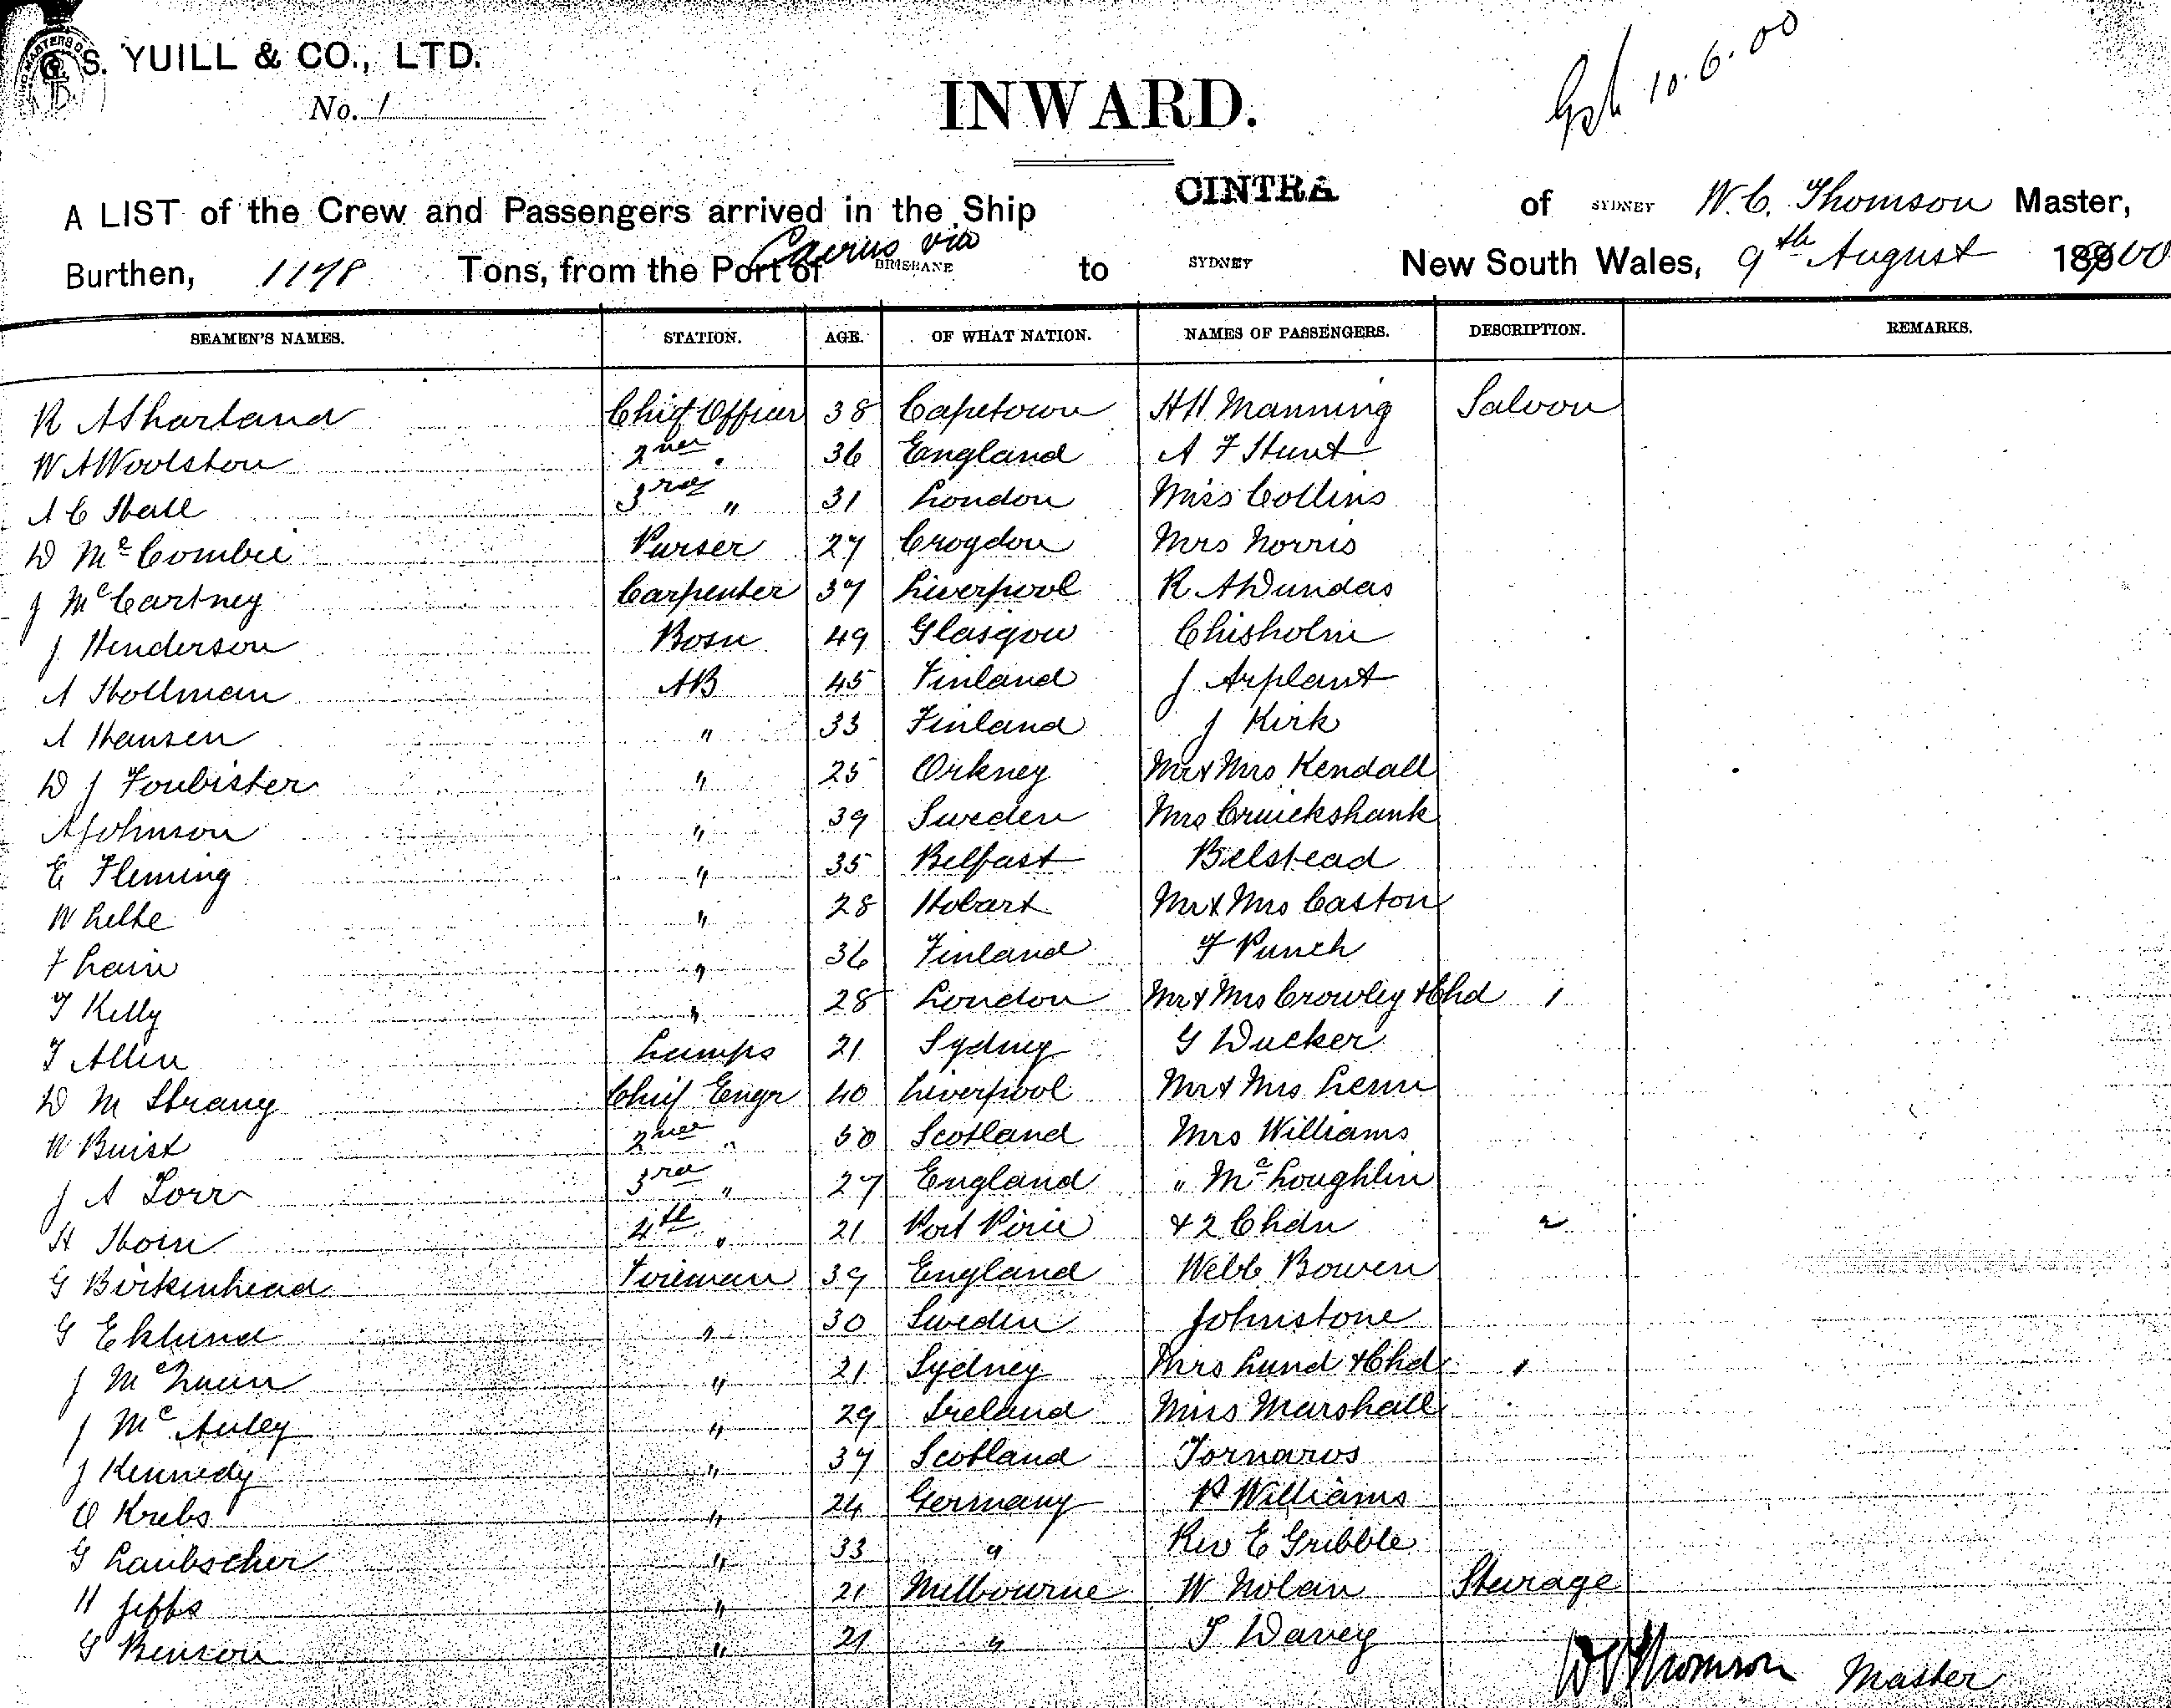 G. S. YUILL & CO., LTD.
No. 1
INWARD.
10.6.00
A LIST of the Crew and Passengers arrived in the Ship CINTRA of SYDNEY W. C. Thomson Master,
Burthen, 1178 Tons, from the Port of Cairns via BRISBANE to SYDNEY New South Wales, 9th August 1900
SEAMEN'S NAMES. STATION. AGE. OF WHAT NATION. NAMES OF PASSENGERS. DESCRIPTION. REMARKS.
R A Sharland Chief Officer 38 Capetown H H Manning Saloon
W A Woolston 2nd " 36 England A F Hunt
A C Hall 3rd " 31 London Miss Collins
D McCombie Purser 27 Croydon Mrs Norris
J McCartney Carpenter 37 Liverpool R A Dundas
J Henderson Bosn 49 Glasgow Chisholm
A Hollman AB 45 Finland J Arplant
A Hansen " 33 Finland J Kirk
D J Foubister " 25 Orkney Mr & Mrs Kendall
A Johnson " 39 Sweden Mrs Cruickshank
E Fleming " 35 Belfast Belstead
W " 28 Hobart Mr & Mrs Caston
F Lain " 36 Finland F Punch
T Kelly " 28 London Mr & Mrs Crowley & Chd 1
T Allen Lamps 21 Sydney G Ducker
D M Strang Chief Engr 40 Liverpool Mr & Mrs
W Buist 2nd " 50 Scotland Mrs Williams
J A Lorr 3rd " 27 England " McLoughlin
H Horn 4th " 21 Port Pirie & 2 Chdn 2
G Birkenhead Fireman 39 England Webb Bowen
G Eklund " 30 Sweden Johnstone
J McQueen " 21 Sydney Mrs Lund & Chd 1
J McAuley " 29 Ireland Miss Marshall
J Kennedy " 37 Scotland Tornaros
O Krebs " 24 Germany P Williams
G Laubscher " 33 " Rev E Gribble
H Jeffs " 21 Melbourne W Nolan Steerage
G Benson " 21 " T Davey
W C Thomson Master